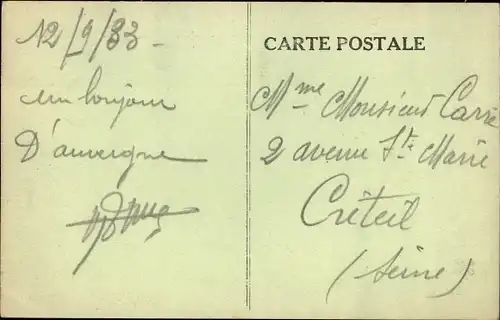 12/9/33-
un bonjour
D'auvergne
CARTE POSTALE
Mme Monsieur Carre
2 avenue Ste Marie
Créteil
(Seine)